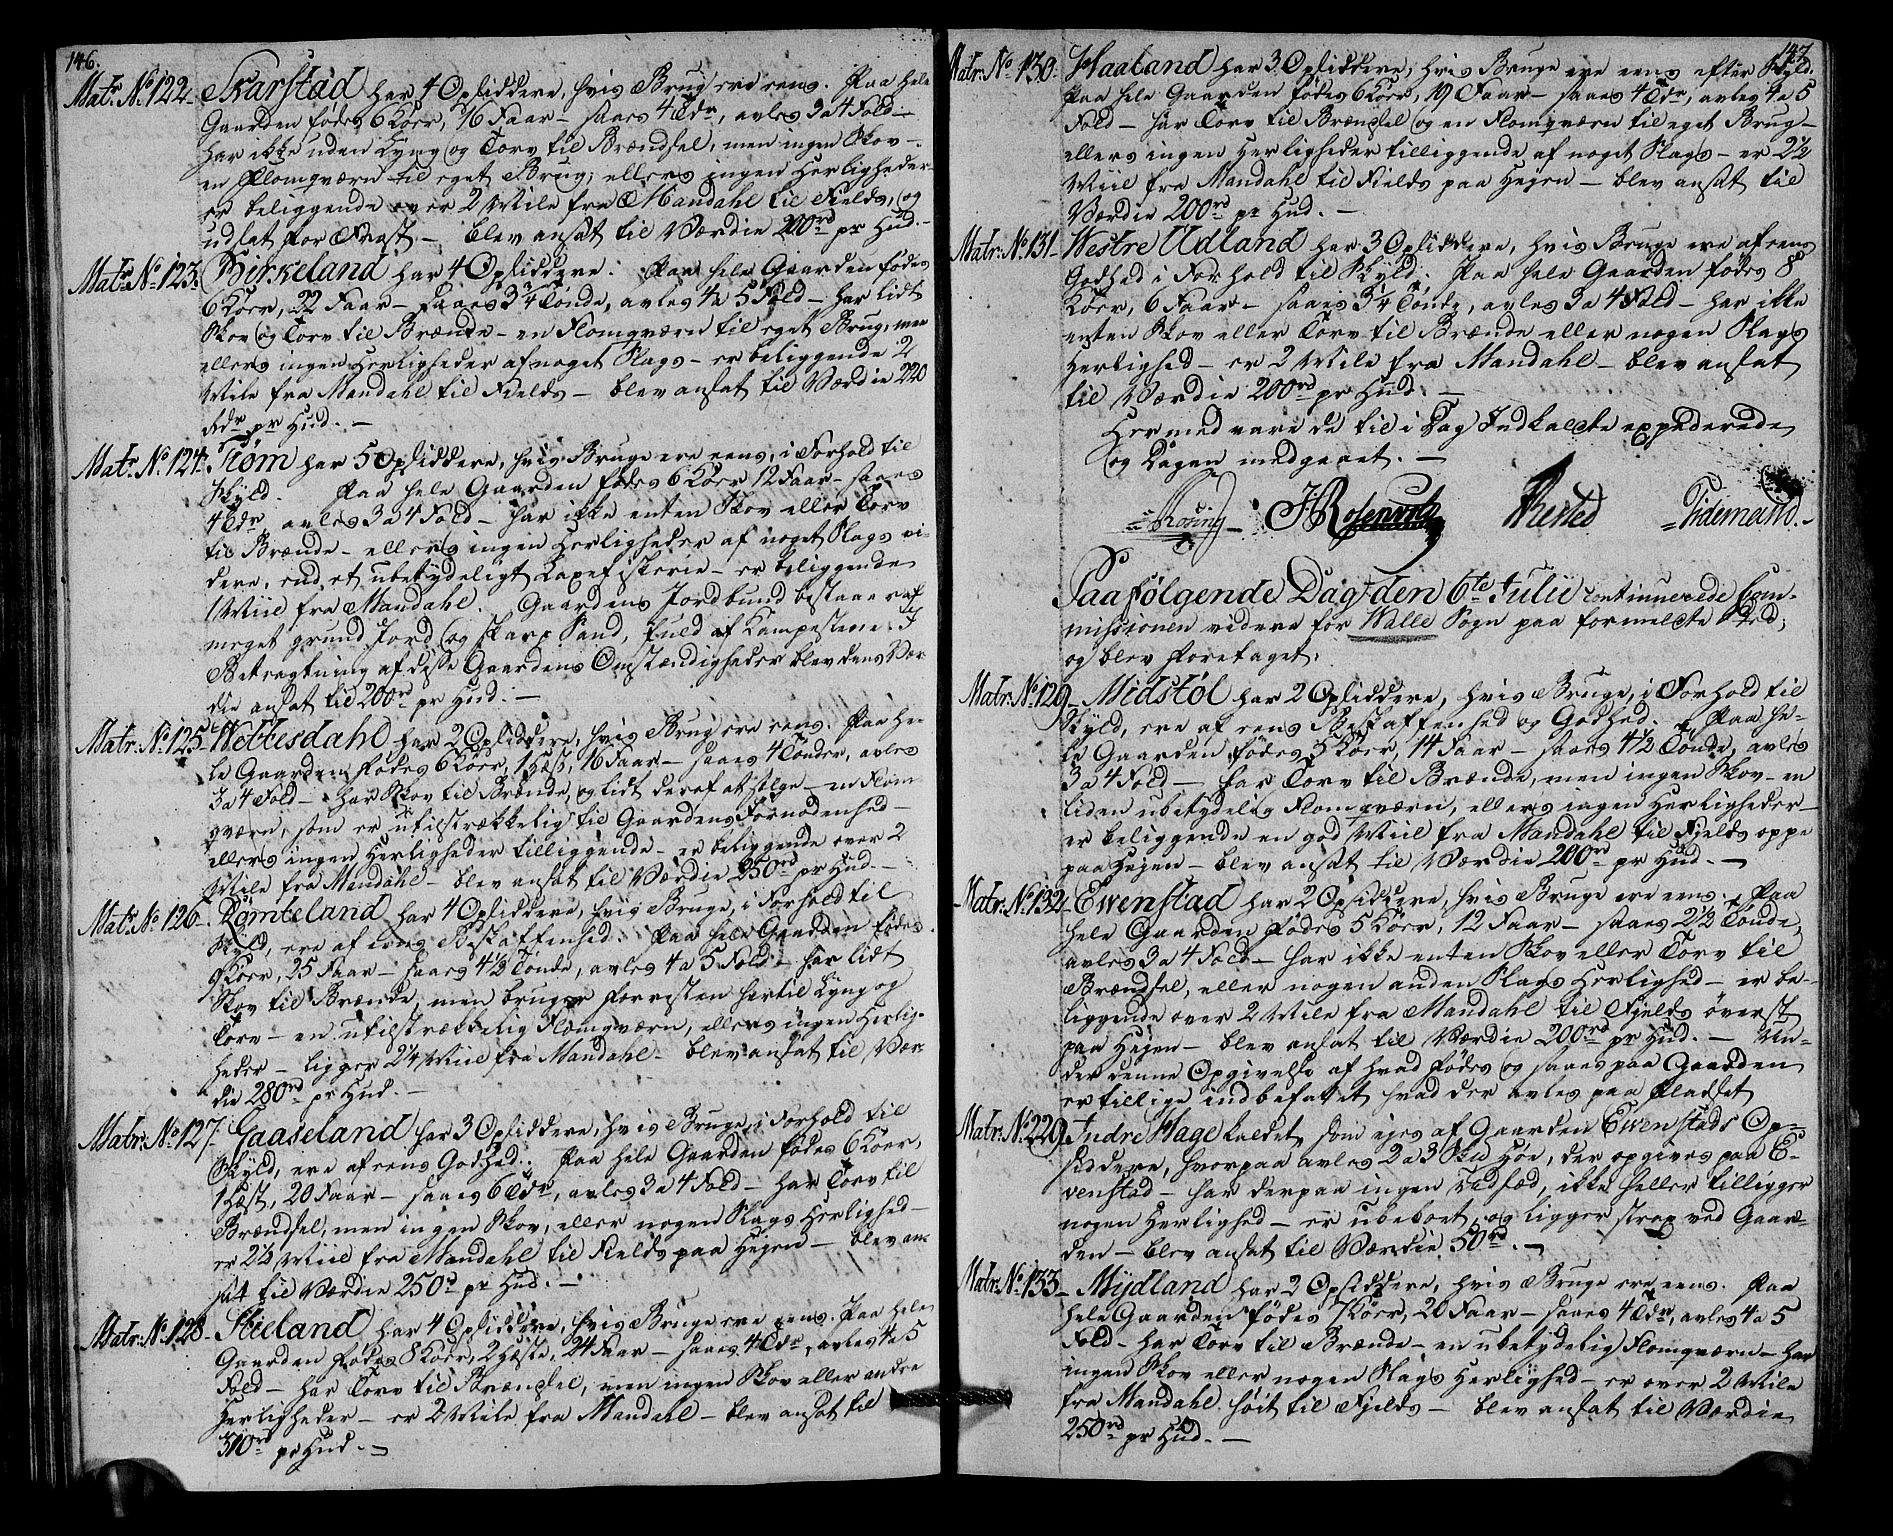 146.
Matr. No. 122. Skarstad har 4 Opsiddere, hvis Brug ere eens. Paa hele
Gaarden fødes 6 Køer, 16 Faar – saaes 4 Tdr, avles 3 a 4 Fold –
har ikke uden Lyng og Torv til Brændsel, men ingen Skov –
en Flomqværn til eget Brug; ellers ingen Herligheder –
er beliggende over 2 Mile fra Mandahl til Fields, og
udsat for Frost – blev ansat til Værdie 200rd pr Hud. –
Matr. No. 123. Birkeland har 4 Opsiddere. Paa hele Gaarden fødes
6 Køer, 22 Faar – saaes 3 1/4 Tønde, avles 4 a 5 Fold – har lidt
Skov og Torv til Brænde – en Flomqværn til eget Brug, men
ellers ingen Herligheder af noget Slags – er beliggende 2
Mile fra Mandahl til Fields – blev ansat til Værdie 220
Rdr pr Hud. –
Matr. No. 124. Møm har 5 Opsiddere, hvis Bruge ere eens, i Forhold til
Skyld. Paa hele Gaarden fødes 6 Køer 12 Faar – saaes
4 Tdr, avles 3 a 4 Fold – har ikke enten Skov eller Torv
til Brænde – ellers ingen Herligheder af noget Slags vi-
dere, end et ubetydeligt Laxefiskerie – er beliggende
1 Miil fra Mandahl. Gaardens Jordbund bestaaer af
meget grund Jord og skarp Sand, fuld af Kampesteene. I
Betragtning af disse Gaardens Omstændigheder blev dens Vær
die ansat til 200rd pr Hud. –
Matr. No. 125. Wettesdahl har 2 Opsiddere, hvis Brug ere eens. Paa he-
le Gaarden fødes 6 Køer, 1 Hæst, 16 Faar – saaes 4 Tønder, avles
3 a 4 Fold – har Skov til Brænde, og lidt deraf at sælge – en Flom
qværn, som er utilstrækkelig til Gaardens Fornødenhed –
ellers ingen Herligheder tilliggende – er beliggende over 2
Mile fra Mandahl – blev ansat til Værdie 250rd pr Hud –
Matr. No. 126. Rømteland har 4 Opsiddere, hvis Bruge, i Forhold til
Skyld, ere af eens Beskaffenhed. Paa hele Gaarden fødes
9 Køer, 25 Faar – saaes 4 1/2 Tønde, avles 4 a 5 Fold – har lidt
Skov til Brænde, men bruger forresten hertil Lyng og
Torv – en utilstrækkelig Flomqværn, ellers ingen Herlig-
heder – ligger 2 1/4 Miil fra Mandahl – blev ansat til Vær-
die 280rd pr Hud. –
Matr. No. 127. Gaaseland har 3 Opsiddere, hvis Bruge, i Forhold til
Skyld, ere af eens Godhed. Paa hele Gaarden fødes 6 Køer,
1 Hæst, 20 Faar – saaes 6 Tdr, avles 3 a 4 Fold – har Torv til
Brændsel, men ingen Skov, eller nogen Slags Herlighed –
er 2 1/2 Miil fra Mandahl til Fields paa Hejen – blev an-
sat til Værdie 250rd pr Hud. –
Matr. No. 128. Skieland har 4 Opsiddere, hvis Bruge ere eens. Paa hele
Gaarden fødes 8 Køer, 2 Hæste, 24 Faar – saaes 4 Tdr, avles 4 a 5
Fold – har Torv til Brændsel, men ingen Skov eller andre
Herligheder – er 2 Mile fra Mandahl – blev ansat til
310rd pr Hud. –
147.
Matr. No. 130. Haaland har 3 Opsiddere, hvis Bruge ere eens efter Skyld.
Paa hele Gaarden fødes 6 Køer, 19 Faar – saaes 4 Tdr, avles 4 a 5
Fold – har Torv til Brændsel og en Flomqværn til eget Brug –
ellers ingen Herligheder tilliggende af noget Slags – er 2 1/2
Miil fra Mandahl til Fields paa Hejen – blev ansat til
Værdie 200rd pr Hud. –
Matr. No. 131. Westre Udland har 3 Opsiddere, hvis Bruge ere af eens
Godhed i Forhold til Skyld. Paa hele Gaarden fødes 8
Køer, 6 Faar – saaes 3 1/4 Tønde, avles 3 a 4 Fold – har ikke
enten Skov eller Torv til Brænde eller nogen Slags
Herlighed – er 2 Mile fra Mandahl – blev ansat
til Værdie 200rd pr Hud. –
Hermed vare de til i Dag Indkaldte expederede
og Dagen medgaaet. –
Rosing JRosenvold Thested Tidemand.
Paafølgende Dag den 6te Julii continuerede Com-
missionen videre for Halle Sogn paa formeldte Sted,
og blev foretaget:
Matr. No. 129. Midstøl har 2 Opsiddere, hvis Bruge, i Forhold til
Skyld, ere af eens Beskaffenhed og Godhed. Paa he-
le Gaarden fødes 5 Køer, 14 Faar – saaes 4 1/2 Tønde, avles
3 a 4 Fold – har Torv til Brænde, men ingen Skov – en
liden ubetydelig Flomqværn, ellers ingen Herligheder –
er beliggende en god Miil fra Mandahl til Fjelds oppe
paa Hejen – blev ansat til Værdie 200rd pr Hud. –
Matr. No. 132. Ewenstad har 2 Opsiddere, hvis Bruge ere eens. Paa
hele Gaarden fødes 5 Køer, 12 Faar – saaes 2 1/2 Tønde,
avles 3 a 4 Fold – har ikke enten Skov eller Torv til
Brændsel, eller nogen anden Slags Herlighed – er be-
liggende over 2 Mile fra Mandahl til Fjelds øverst
paa Hejen – blev ansat til Værdie 200rd pr Hud. – Un-
der denne Opgivelse af hvad fødes og saaes paa Gaarden
er tillige indbefattet hvad der avles paa Pladset
Matr. No. 229. Indre Hage kaldet, som ejes af Gaarden Ewenstads Op-
siddere, hvorpaa avles 2 a 3 Skd Høe, der opgives paa E-
venstad – har derpaa ingen Udsæd, ikke heller tilligger
nogen Herlighed – er ubeboet, og ligger strax ved Gaar-
den – blev ansat til Værdie 50rd. –
Matr. No. 133. Mydland har 2 Opsiddere, hvis Bruge ere eens. Paa
hele Gaarden fødes 7 Køer, 20 Faar – saaes 4 Tdr, avles 4 a 5
Fold – har Torv til Brænde – en ubetydelig Flomqværn – har
ingen Skov eller nogen Slags Herlighed – er over 2 Mile
fra Mandahl høit til Fjelds – blev ansat til Værdie
250rd pr Hud. –